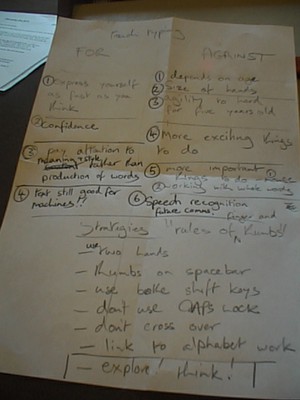 Touch typing
FOR
① express yourself
as fast as you
think
② Confidence
③ pay attention to
meaning + style
rather than
production of words
④ text still good for
machines!!
AGAINST
① depends on age
② Size of hands
③ Agility to hard
for five years old
④ More exciting things
to do
⑤ more important
things to do
working with whole words
⑥ Speech recognition
future comms.
Strategies "rules of thumb"
- use two hands
- thumbs on spacebar
- use both shift keys
- dont use CAPS LOCK
- don't cross over
- link to alphabet work
- explore! think!